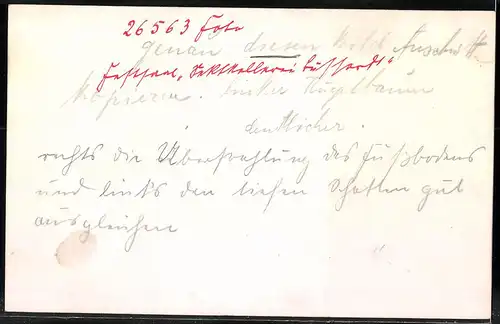 26563 Foto
genau diesen Bild Ausschnitt
Festsaal „Sektkellerei Bussard“
kopieren. linker
deutlicher.
rechts die Überstrahlung des Fußbodens
und links den tiefen Schatten gut
ausgleichen